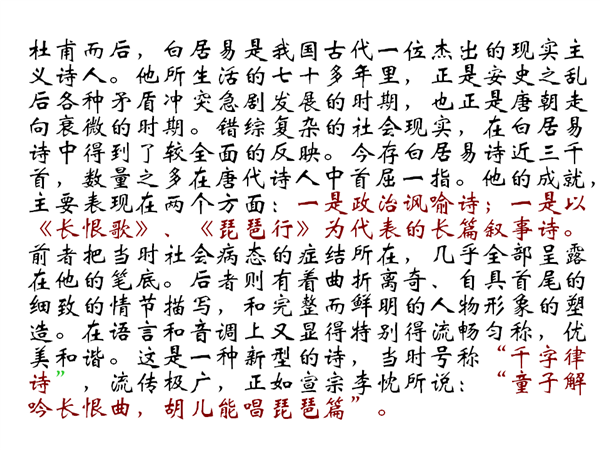 杜甫而后，白居易是我国古代一位杰出的现实主
义诗人。他所生活的七十多年里，正是安史之乱
后各种矛盾冲突急剧发展的时期，也正是唐朝走
向衰微的时期。错综复杂的社会现实，在白居易
诗中得到了较全面的反映。今存白居易诗近三千
首，数量之多在唐代诗人中首屈一指。他的成就，
主要表现在两个方面：一是政治讽喻诗；一是以
《长恨歌》、《琵琶行》为代表的长篇叙事诗。
前者把当时社会病态的症结所在，几乎全部呈露
在他的笔底。后者则有着曲折离奇、自具首尾的
细致的情节描写，和完整而鲜明的人物形象的塑
造。在语言和音调上又显得特别得流畅匀称，优
美和谐。这是一种新型的诗，当时号称“千字律
诗”，流传极广，正如宣宗李忱所说：“童子解
吟长恨曲，胡儿能唱琵琶篇”。